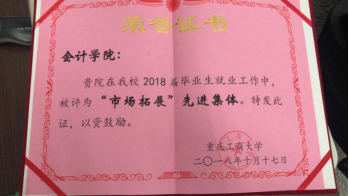 荣誉证书
会计学院：
贵院在我校2018届毕业生就业工作中，
被评为“市场拓展”先进集体。特发此
证，以资鼓励。
重庆工商大学
二〇一八年十月十七日